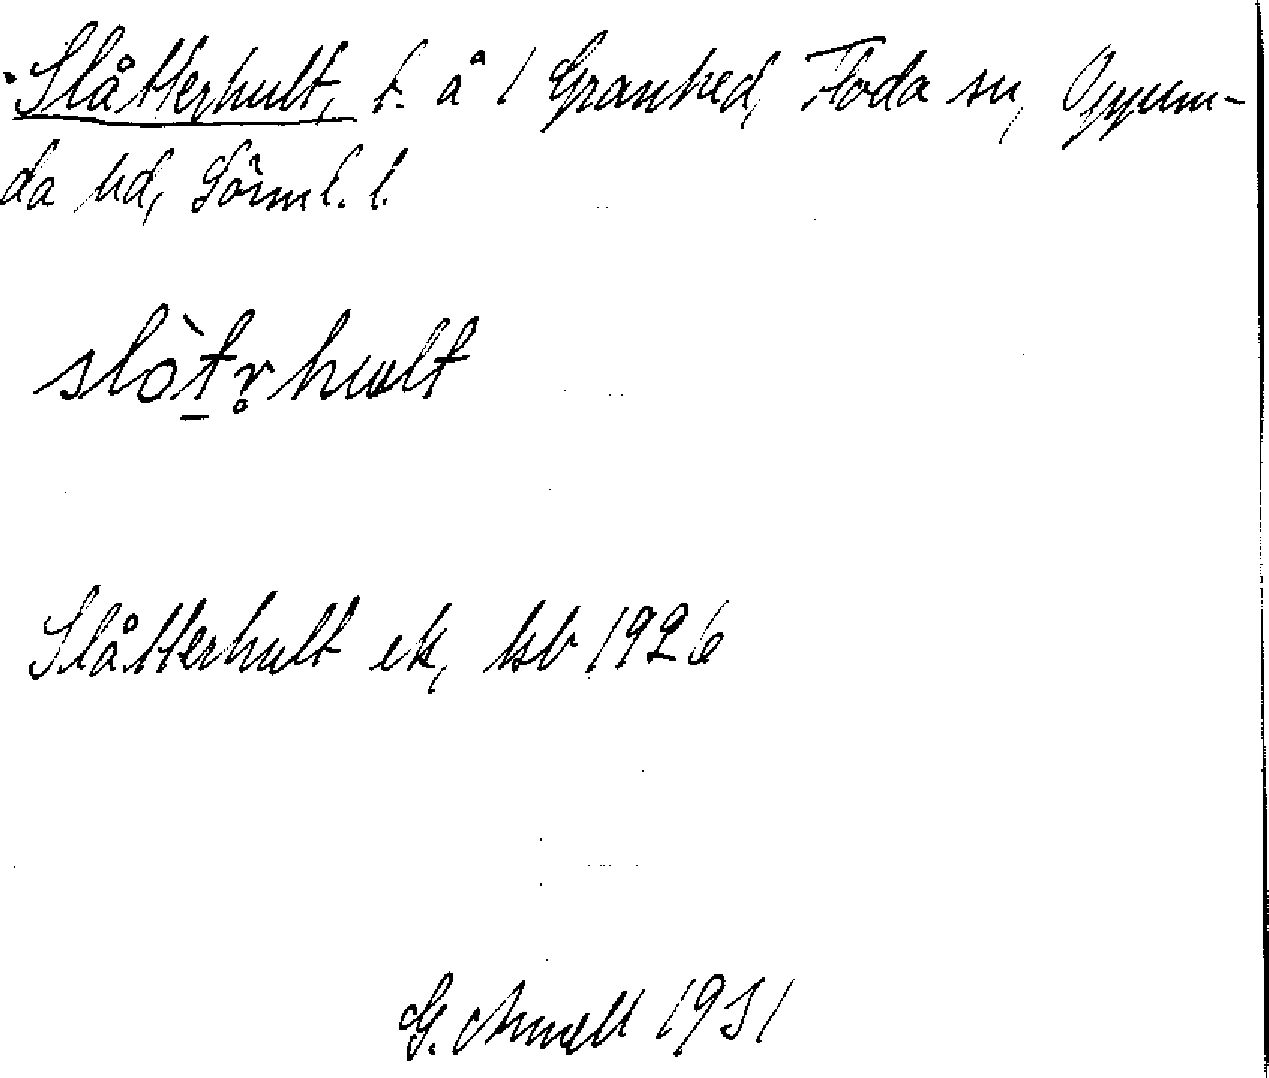 Slåtterhult, t. å 1 Granhed, Floda sn, Oppun-
da hd, Sörml. l.
slòt̠r̥hult
Slåtterhult ek, kb 1926
G. Arnell 1931